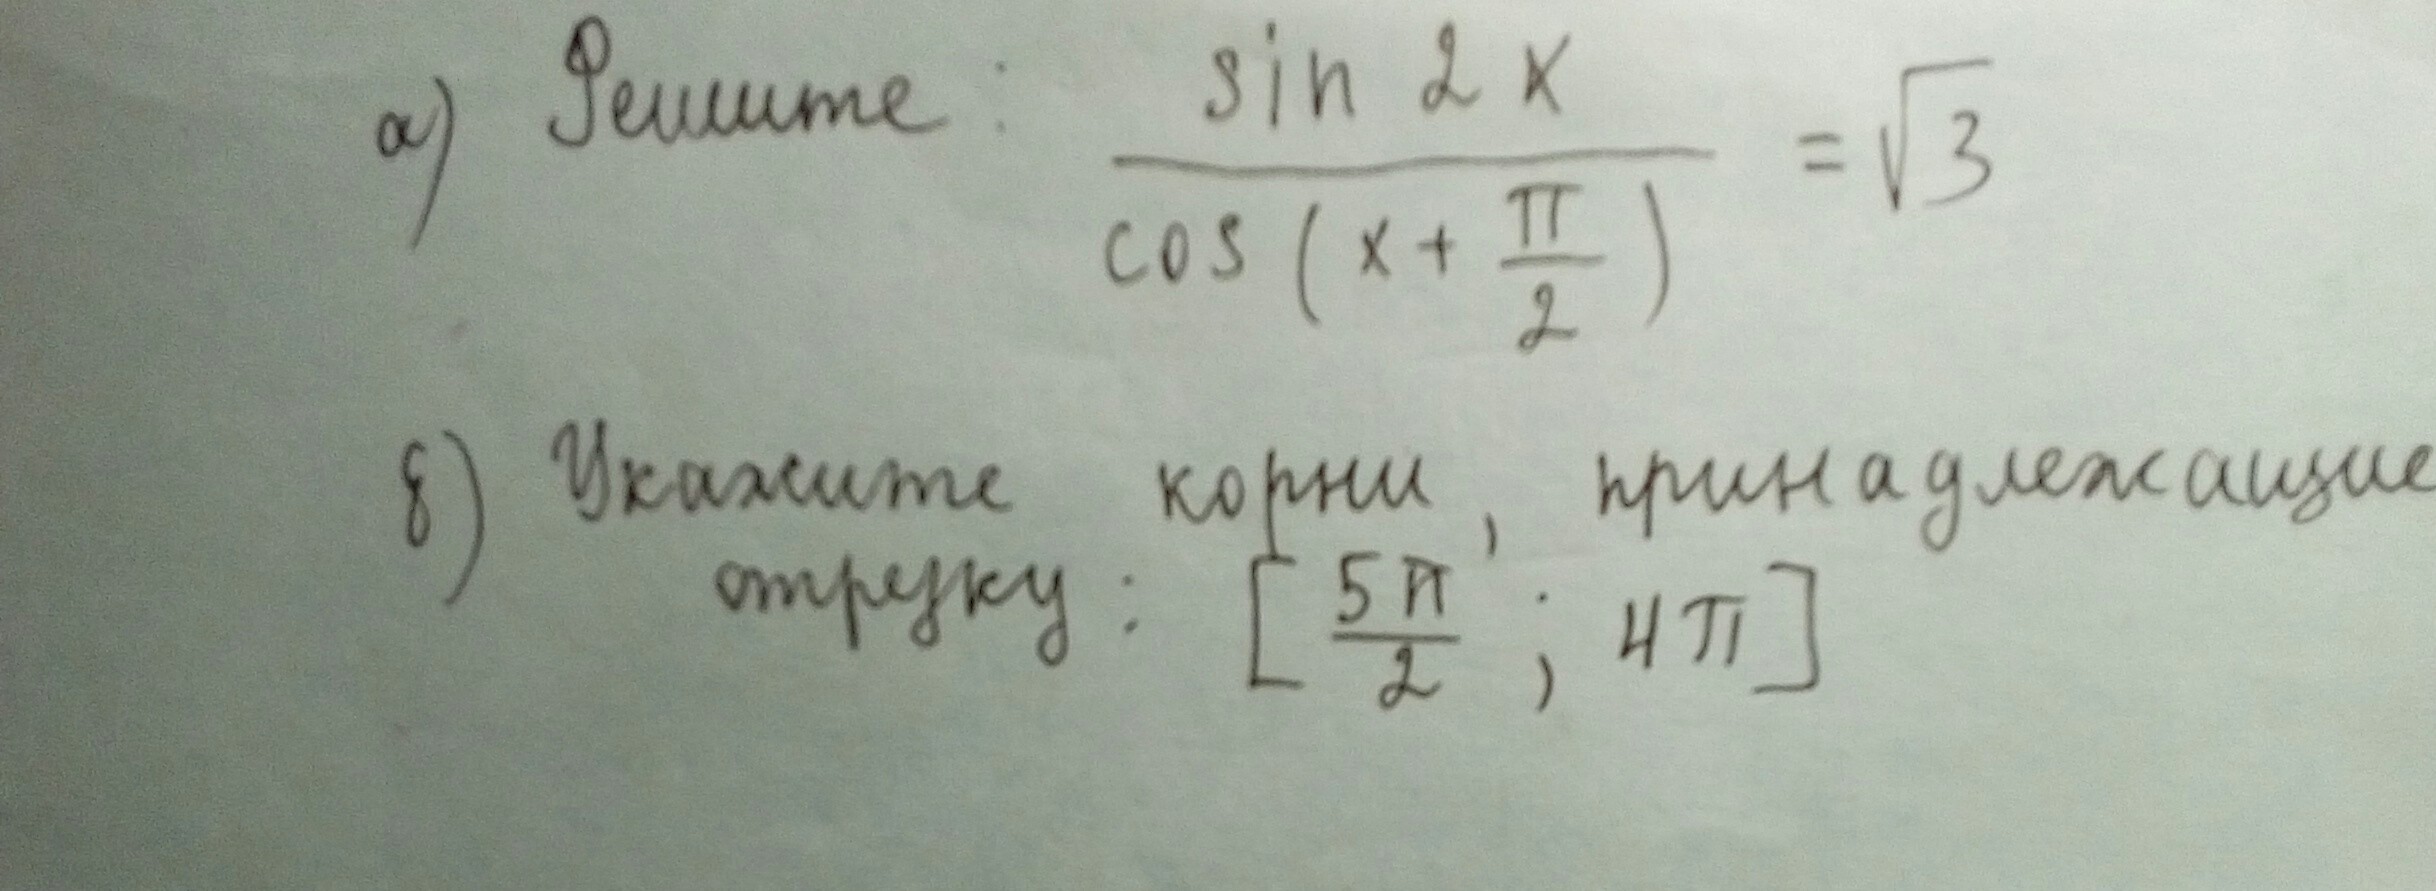 а) Решите: sin 2x / cos(x + π/2) = √3
б) Укажите корни, принадлежащие
отрезку: [5π/2 ; 4π]